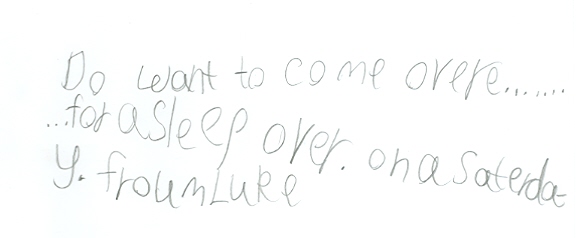 Do want to come overe.......
...for a sleep over. on a Saterda
y. froum Luke